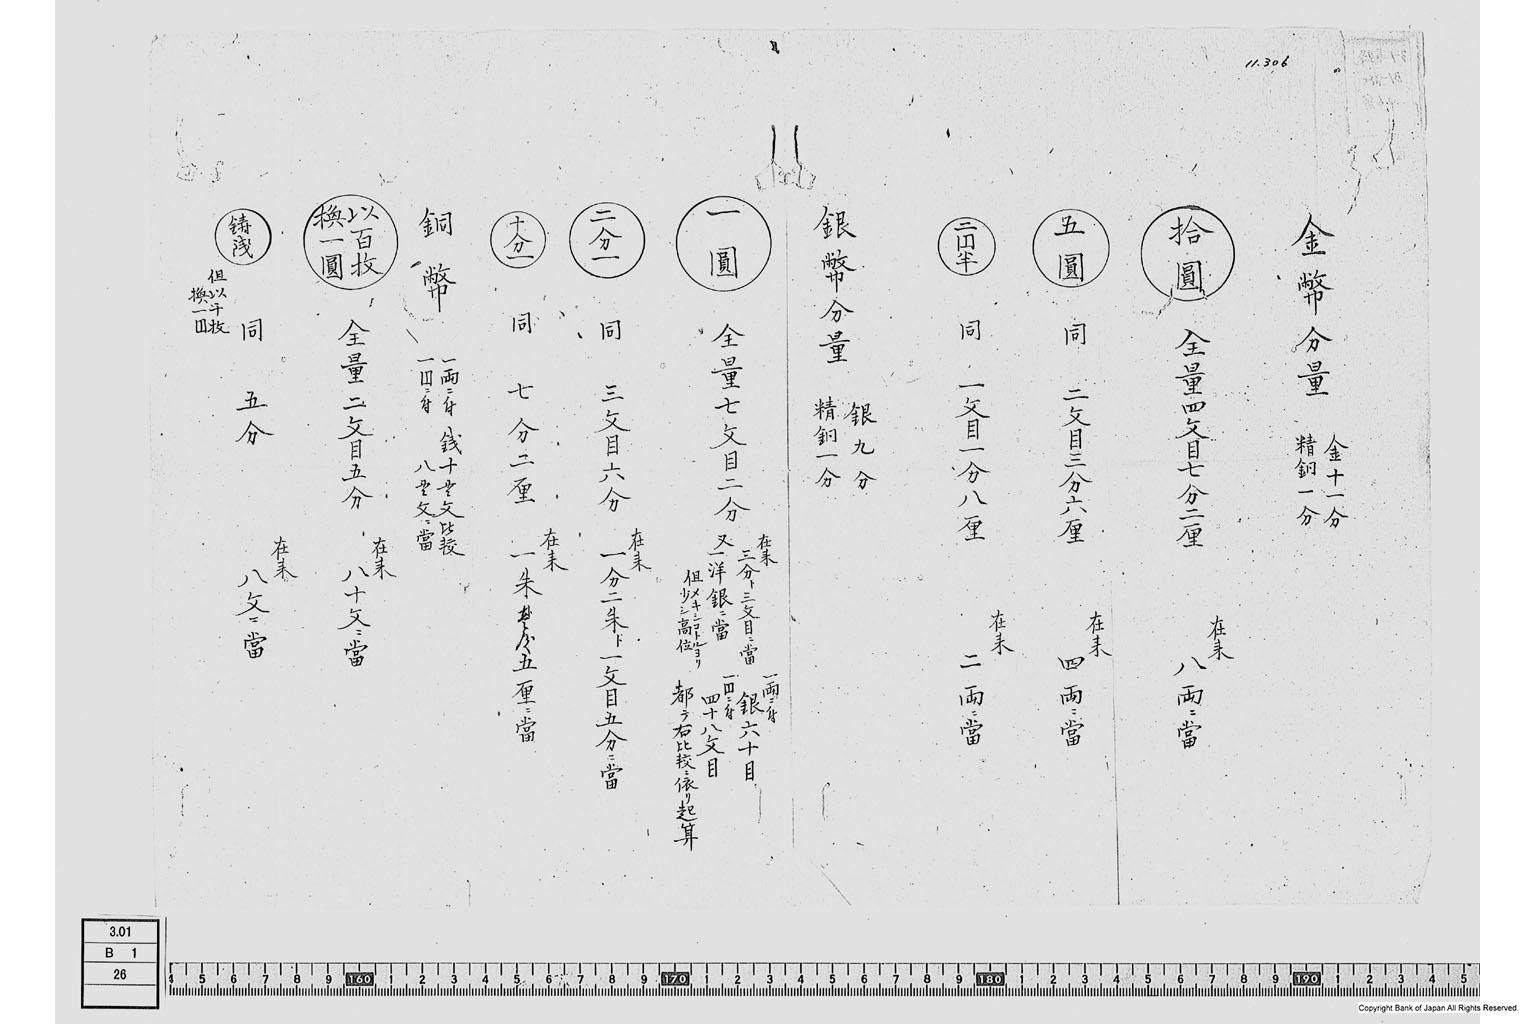 11.306
金幣分量
金十一分
精銅一分
拾圓
全量四文目七分二厘
在来
八両ニ當
五圓
同 二文目三分六厘
在来
四両ニ當
二円半
同 一文目一分八厘
在来
二両ニ當
銀幣分量
銀九分
精銅一分
一圓
全量七文目二分
在来
三分ト三文目ニ當
又一洋銀ニ當
但メキシコトルヨリ
少シ高位
一両ニ付
銀六十目
一円ニ付
四十八文目
都テ右比較ニ依リ起算
二分一
同 三文目六分
在来
一分二朱ト一文目五分ニ當
十分一
同 七分二厘
在来
一朱 五厘ニ當
銅幣
一両ニ付 銭十貫文比較
一円ニ付 八貫文ニ當
以百枚
換一圓
全量二文目五分
在来
八十文ニ當
鋳浅
但以千枚
換一円
同 五分
在来
八文ニ當
3.01
B 1
26
4 5 6 7 8 9 160 1 2 3 4 5 6 7 8 9 170 1 2 3 4 5 6 7 8 9 180 1 2 3 4 5 6 7 8 9 190 1 2 3 4 5
Copyright Bank of Japan All Rights Reserved.